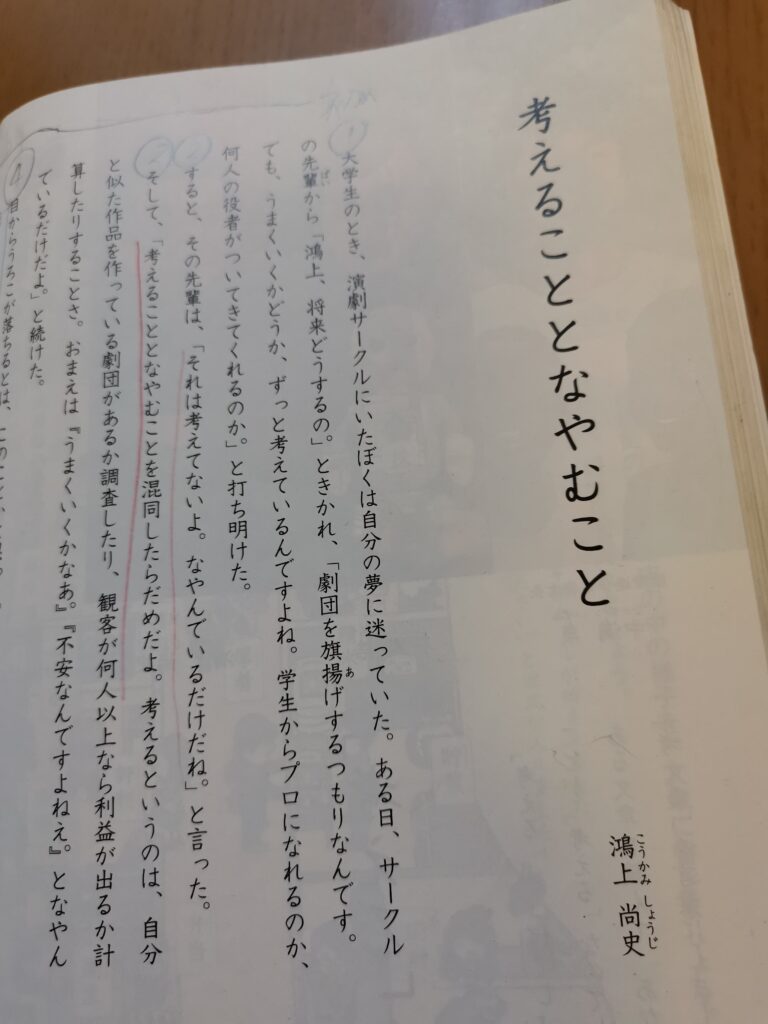 考えることとなやむこと
鴻上 尚史
こうかみ しょうじ
① 大学生のとき、演劇サークルにいたぼくは自分の夢に迷っていた。ある日、サークル
の先輩から「鴻上、将来どうするの。」ときかれ、「劇団を旗揚げするつもりなんです。
ぱい
あ
でも、うまくいくかどうか、ずっと考えているんですよね。学生からプロになれるのか、
何人の役者がついてきてくれるのか。」と打ち明けた。
② すると、その先輩は、「それは考えてないよ。なやんでいるだけだね。」と言った。
③ そして、「考えることとなやむことを混同したらだめだよ。考えるというのは、自分
と似た作品を作っている劇団があるか調査したり、観客が何人以上なら利益が出るか計
算したりすることさ。おまえは『うまくいくかなあ。』『不安なんですよねえ。』となやん
でいるだけだよ。」と続けた。
④ 目からうろこが落ちるとは、このこと